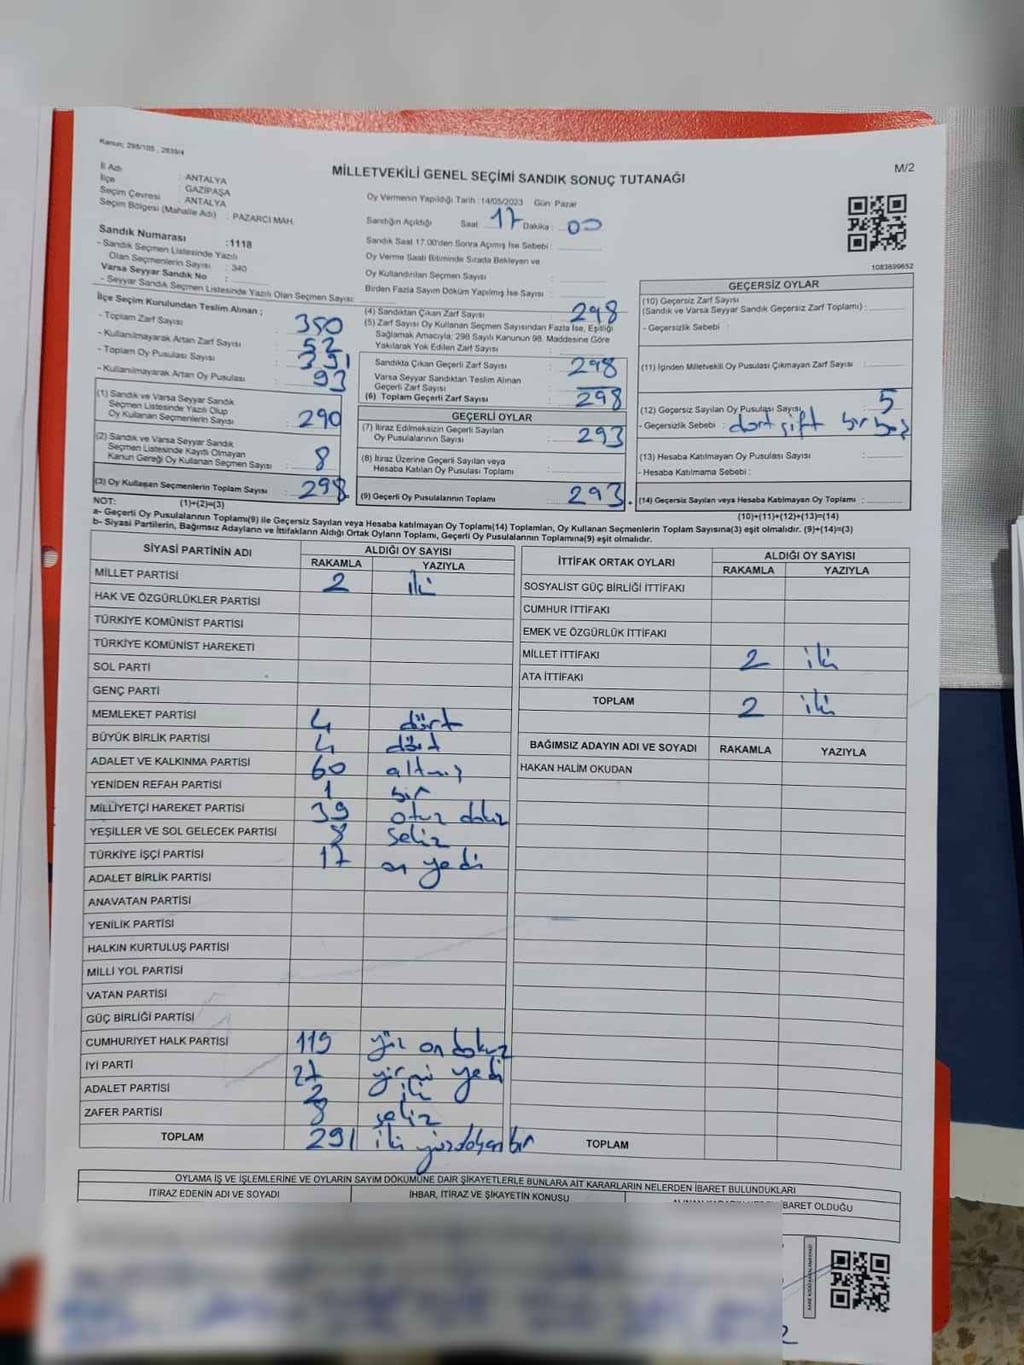 Kanun; 298/105 , 2839/4
M/2
MİLLETVEKİLİ GENEL SEÇİMİ SANDIK SONUÇ TUTANAĞI
İl Adı : ANTALYA
İlçe : GAZİPAŞA
Seçim Çevresi : ANTALYA
Seçim Bölgesi (Mahalle Adı) : PAZARCI MAH.
Sandık Numarası :1118
- Sandık Seçmen Listesinde Yazılı
Olan Seçmenlerin Sayısı : 340
Varsa Seyyar Sandık No :
- Seyyar Sandık Seçmen Listesinde Yazılı Olan Seçmen Sayısı:
Oy Vermenin Yapıldığı Tarih :14/05/2023 Gün: Pazar
Sandığın Açıldığı Saat 17 Dakika : 00
Sandık Saat 17.00'den Sonra Açılmış İse Sebebi :
Oy Verme Saati Bitiminde Sırada Bekleyen ve
Oy Kullandırılan Seçmen Sayısı :
Birden Fazla Sayım Döküm Yapılmış İse Sayısı :
1083699652
İlçe Seçim Kurulundan Teslim Alınan ;
- Toplam Zarf Sayısı : 350
- Kullanılmayarak Artan Zarf Sayısı : 52
- Toplam Oy Pusulası Sayısı : 391
- Kullanılmayarak Artan Oy Pusulası : 93
(1) Sandık ve Varsa Seyyar Sandık
Seçmen Listesinde Yazılı Olup
Oy Kullanan Seçmenlerin Sayısı : 290
(2) Sandık ve Varsa Seyyar Sandık
Seçmen Listesinde Kayıtlı Olmayan
Kanun Gereği Oy Kullanan Seçmen Sayısı : 8
(3) Oy Kullanan Seçmenlerin Toplam Sayısı : 298
(1)+(2)=(3)
(4) Sandıktan Çıkan Zarf Sayısı : 298
(5) Zarf Sayısı Oy Kullanan Seçmen Sayısından Fazla İse, Eşitliği
Sağlamak Amacıyla; 298 Sayılı Kanunun 98. Maddesine Göre
Yakılarak Yok Edilen Zarf Sayısı :
Sandıkta Çıkan Geçerli Zarf Sayısı : 298
Varsa Seyyar Sandıktan Teslim Alınan
Geçerli Zarf Sayısı :
(6) Toplam Geçerli Zarf Sayısı : 298
GEÇERLİ OYLAR
(7) İtiraz Edilmeksizin Geçerli Sayılan
Oy Pusulalarının Sayısı : 293
(8) İtiraz Üzerine Geçerli Sayılan veya
Hesaba Katılan Oy Pusulası Toplamı :
(9) Geçerli Oy Pusulalarının Toplamı : 293
GEÇERSİZ OYLAR
(10) Geçersiz Zarf Sayısı
(Sandık ve Varsa Seyyar Sandık Geçersiz Zarf Toplamı) :
- Geçersizlik Sebebi :
(11) İçinden Milletvekili Oy Pusulası Çıkmayan Zarf Sayısı :
(12) Geçersiz Sayılan Oy Pusulası Sayısı : 5
- Geçersizlik Sebebi : dört çift bir boş
(13) Hesaba Katılmayan Oy Pusulası Sayısı :
- Hesaba Katılmama Sebebi :
(14) Geçersiz Sayılan veya Hesaba Katılmayan Oy Toplamı :
(10)+(11)+(12)+(13)=(14)
NOT:
a- Geçerli Oy Pusulalarının Toplamı(9) ile Geçersiz Sayılan veya Hesaba katılmayan Oy Toplamı(14) Toplamları, Oy Kullanan Seçmenlerin Toplam Sayısına(3) eşit olmalıdır. (9)+(14)=(3)
b- Siyasi Partilerin, Bağımsız Adayların ve İttifakların Aldığı Ortak Oyların Toplamı, Geçerli Oy Pusulalarının Toplamına(9) eşit olmalıdır.
SİYASİ PARTİNİN ADI ALDIĞI OY SAYISI
RAKAMLA YAZIYLA
MİLLET PARTİSİ 2 iki
HAK VE ÖZGÜRLÜKLER PARTİSİ
TÜRKİYE KOMÜNİST PARTİSİ
TÜRKİYE KOMÜNİST HAREKETİ
SOL PARTİ
GENÇ PARTİ
MEMLEKET PARTİSİ 4 dört
BÜYÜK BİRLİK PARTİSİ 4 dört
ADALET VE KALKINMA PARTİSİ 60 altmış
YENİDEN REFAH PARTİSİ 1 bir
MİLLİYETÇİ HAREKET PARTİSİ 39 otuz dokuz
YEŞİLLER VE SOL GELECEK PARTİSİ 8 sekiz
TÜRKİYE İŞÇİ PARTİSİ 17 on yedi
ADALET BİRLİK PARTİSİ
ANAVATAN PARTİSİ
YENİLİK PARTİSİ
HALKIN KURTULUŞ PARTİSİ
MİLLİ YOL PARTİSİ
VATAN PARTİSİ
GÜÇ BİRLİĞİ PARTİSİ
CUMHURİYET HALK PARTİSİ 119 yüz on dokuz
İYİ PARTİ 27 yirmi yedi
ADALET PARTİSİ 2 iki
ZAFER PARTİSİ 8 sekiz
TOPLAM 291 iki yüzdoksan bir
İTTİFAK ORTAK OYLARI ALDIĞI OY SAYISI
RAKAMLA YAZIYLA
SOSYALİST GÜÇ BİRLİĞİ İTTİFAKI
CUMHUR İTTİFAKI
EMEK VE ÖZGÜRLÜK İTTİFAKI
MİLLET İTTİFAKI 2 iki
ATA İTTİFAKI
TOPLAM 2 iki
BAĞIMSIZ ADAYIN ADI VE SOYADI RAKAMLA YAZIYLA
HAKAN HALİM OKUDAN
TOPLAM
OYLAMA İŞ VE İŞLEMLERİNE VE OYLARIN SAYIM DÖKÜMÜNE DAİR ŞİKAYETLERLE BUNLARA AİT KARARLARIN NELERDEN İBARET BULUNDUKLARI
İTİRAZ EDENİN ADI VE SOYADI İHBAR, İTİRAZ VE ŞİKAYETİN KONUSU İBARET OLDUĞU